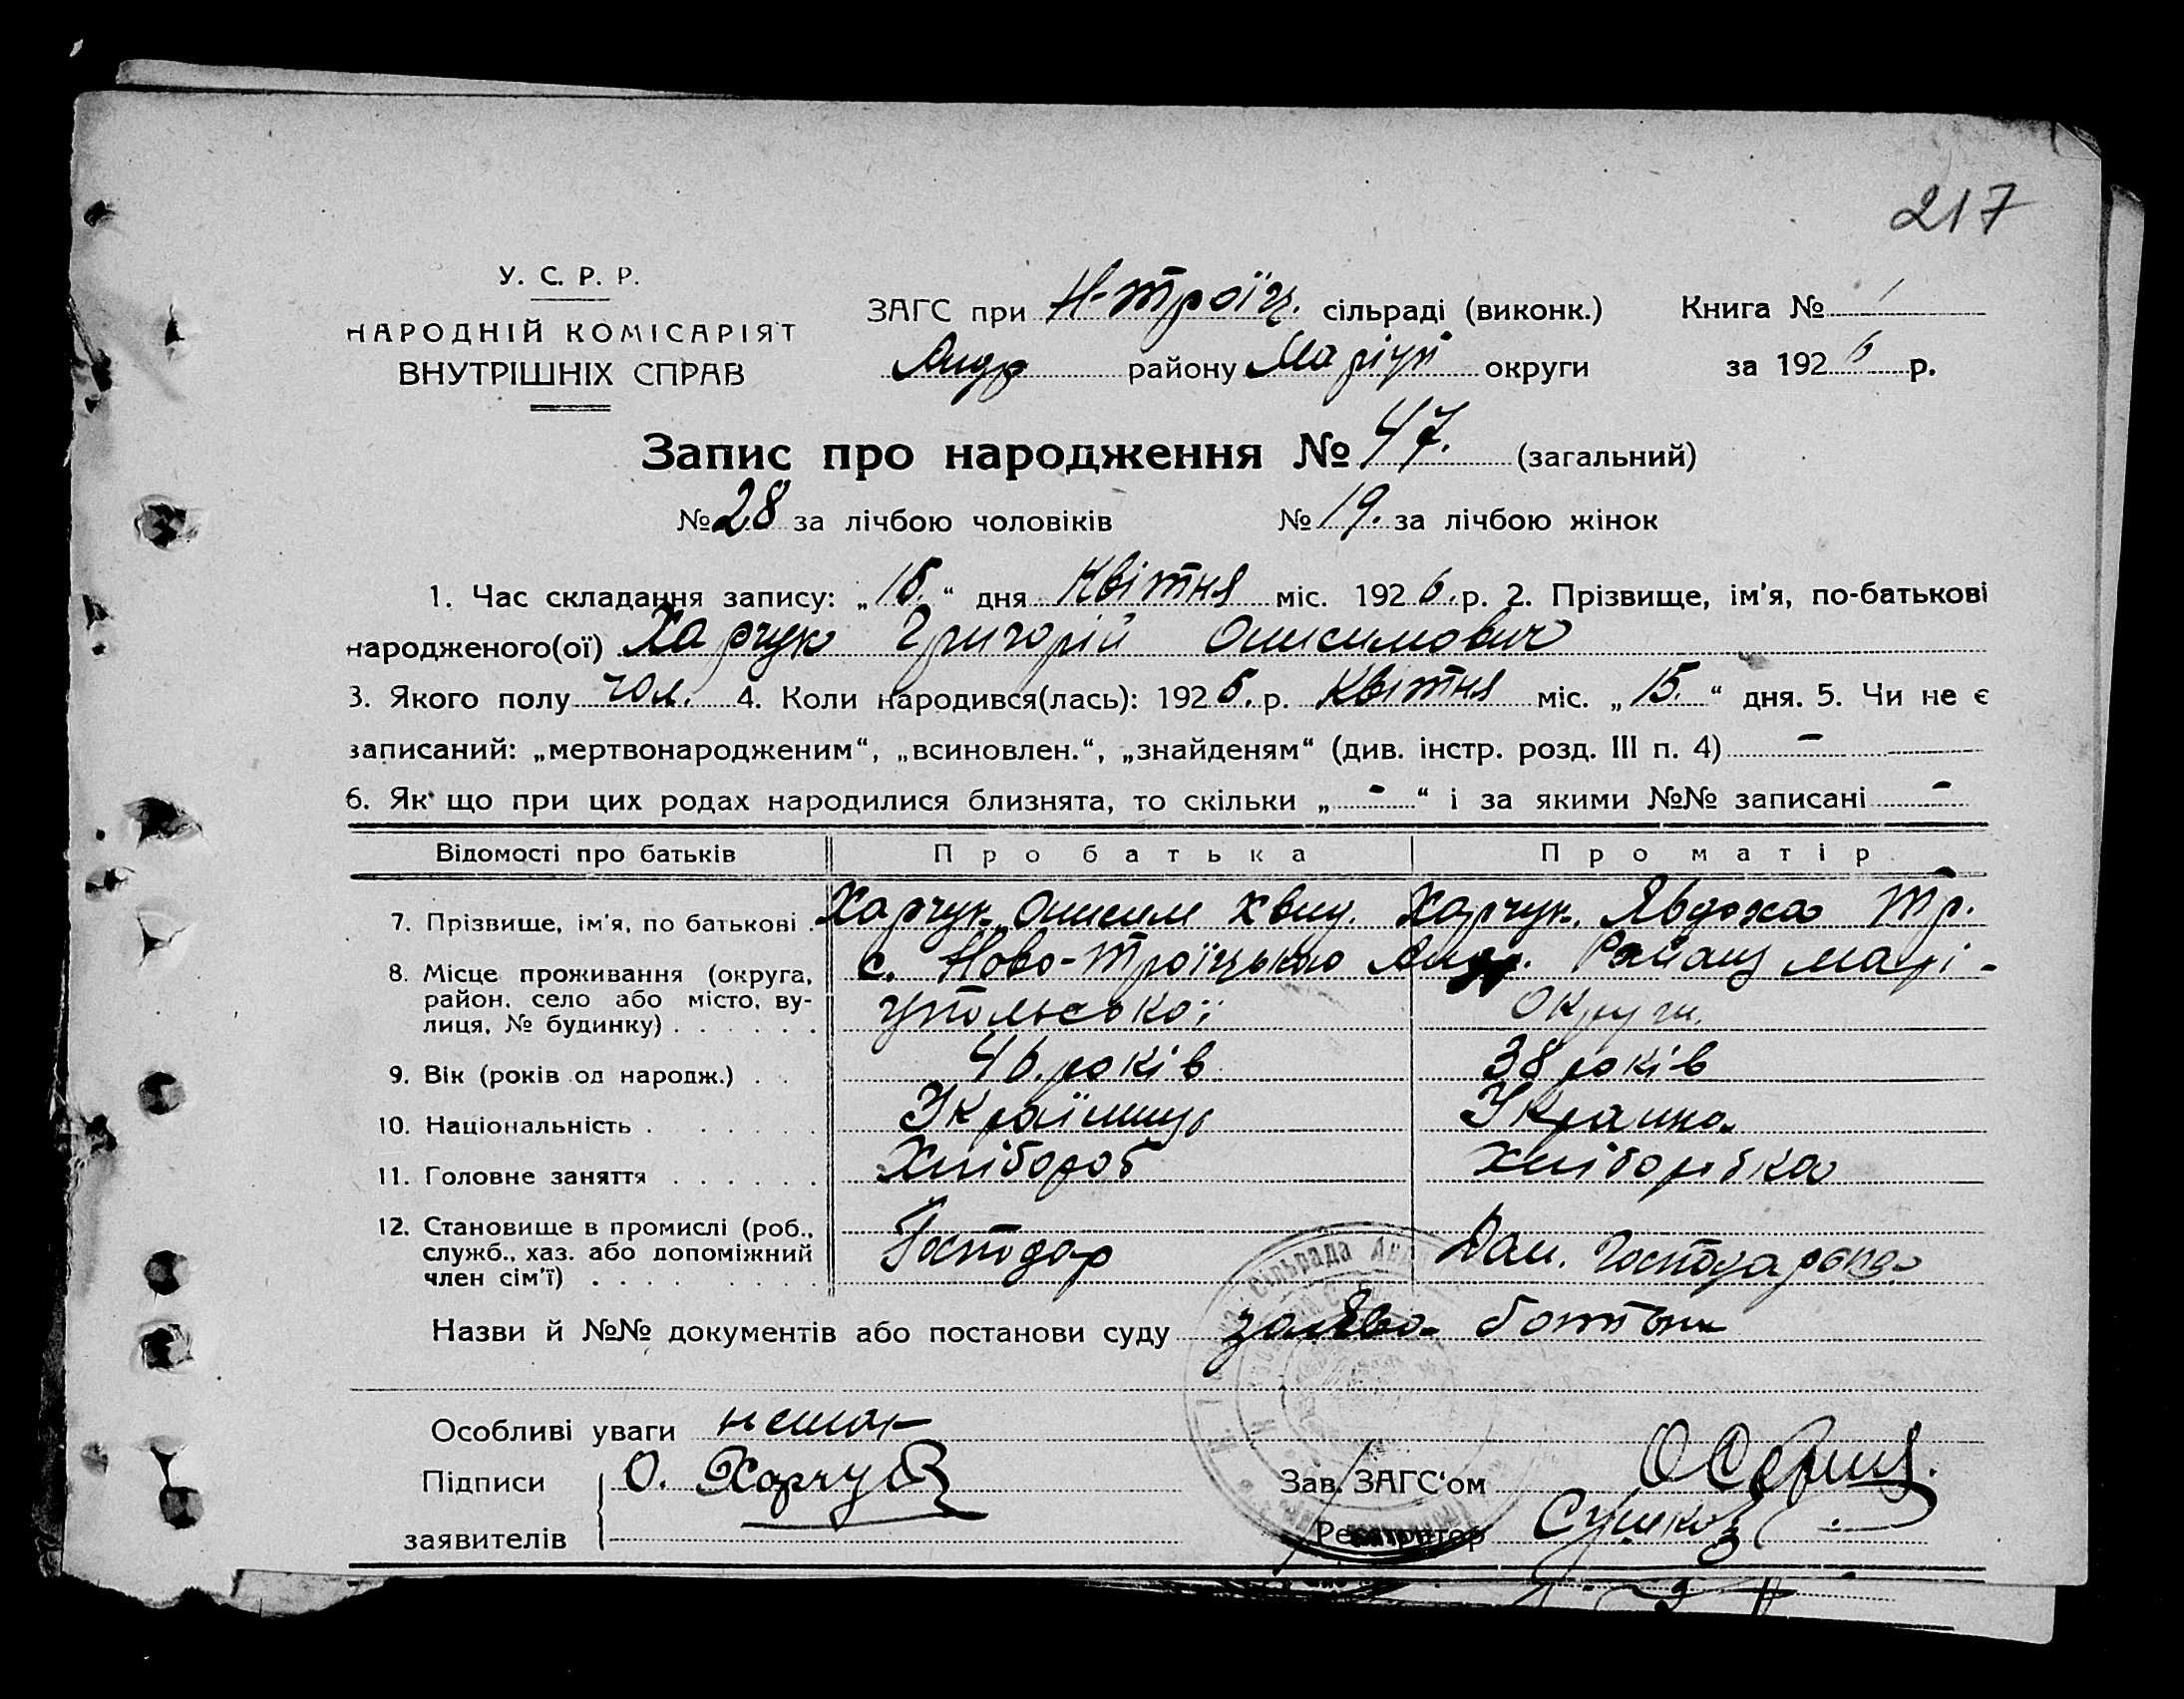 217
У. С. Р. Р.
НАРОДНІЙ КОМІСАРІЯТ
ВНУТРІШНІХ СПРАВ
ЗАГС при Н-Троїц. сільраді (виконк.) Книга № 1
Андр району Маріуп округи за 1926 р.
Запис про народження № 47. (загальний)
№ 28 за лічбою чоловіків № 19. за лічбою жінок
1. Час складання запису: „ “ дня Квітня міс. 1926. р. 2. Прізвище, ім'я, по-батькові
народженого(ої) Харчук Григорій Онисимович
3. Якого полу чол. 4. Коли народився(лась): 1926. р. Квітня міс. „15.“ дня. 5. Чи не є
записаний: „мертвонародженим“, „всиновлен.“, „знайденям“ (див. інстр. розд. III п. 4) -
6. Як що при цих родах народилися близнята, то скільки „ - “ і за якими №№ записані -
Відомості про батьків Про батька Про матір
7. Прізвище, ім'я, по батькові . Харчук Онисим Харчук Явдоха Тр.
8. Місце проживання (округа, район, село або місто, ву-лиця, № будинку) с. Ново-Троїцького Андр. Району Марі-
упольської Округи.
9. Вік (років од народж.) 46. років 38 років
10. Національність Українець Украинка
11. Головне заняття Хлібороб Хліборобка
12. Становище в промислі (роб., служб., хаз. або допоміжний член сім'ї) Господар Дом. Господарка
Назви й №№ документів або постанови суду заява батьки
Особливі уваги немає
Підписи заявителів О. Харчук
Зав. ЗАГС'ом
Реєстратор